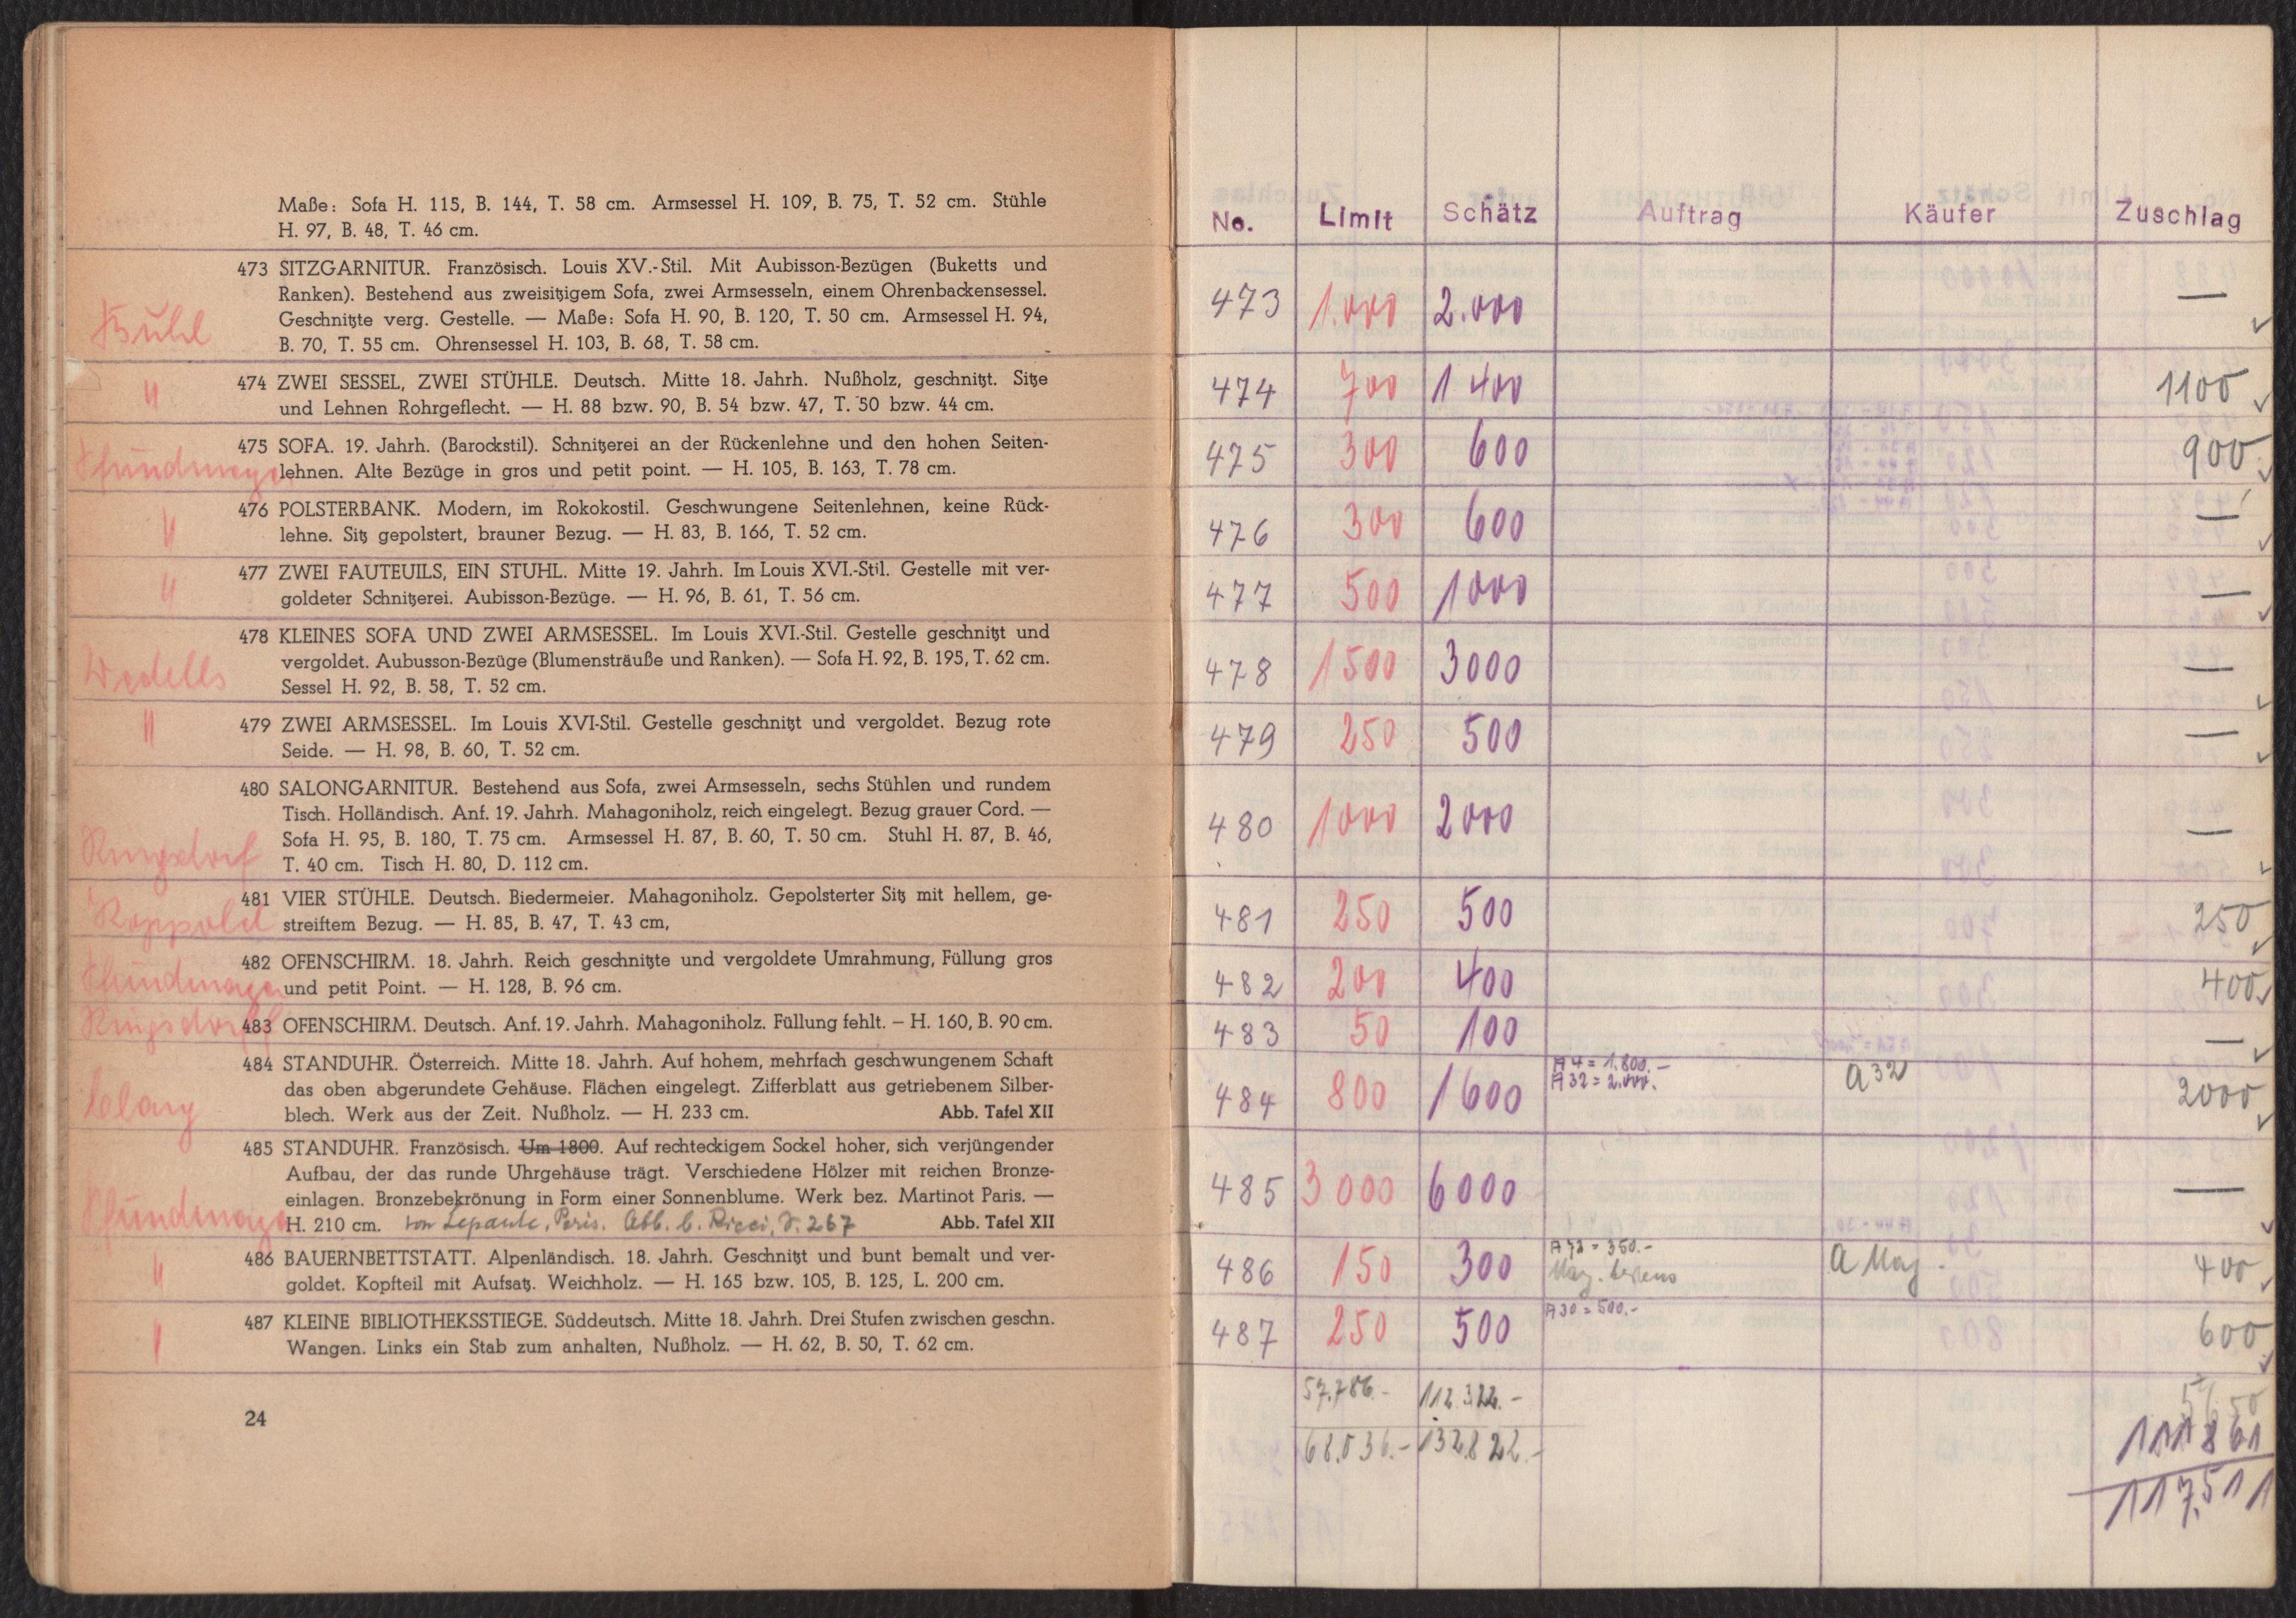 Maße: Sofa H. 115, B. 144, T. 58 cm. Armsessel H. 109, B. 75, T. 52 cm. Stühle
H. 97, B. 48, T. 46 cm.
473 SITZGARNITUR. Französisch. Louis XV.-Stil. Mit Aubisson-Bezügen (Buketts und
Ranken). Bestehend aus zweisitzigem Sofa, zwei Armsesseln, einem Ohrenbackensessel.
Geschnitzte verg. Gestelle. — Maße: Sofa H. 90, B. 120, T. 50 cm. Armsessel H. 94,
Buhl
B. 70, T. 55 cm. Ohrensessel H. 103, B. 68, T. 58 cm.
474 ZWEI SESSEL, ZWEI STÜHLE. Deutsch. Mitte 18. Jahrh. Nußholz, geschnitzt. Sitze
" und Lehnen Rohrgeflecht. — H. 88 bzw. 90, B. 54 bzw. 47, T. 50 bzw. 44 cm.
475 SOFA. 19. Jahrh. (Barockstil). Schnitzerei an der Rückenlehne und den hohen Seiten-
lehnen. Alte Bezüge in gros und petit point. — H. 105, B. 163, T. 78 cm.
476 POLSTERBANK. Modern, im Rokokostil. Geschwungene Seitenlehnen, keine Rück-
" lehne. Sitz gepolstert, brauner Bezug. — H. 83, B. 166, T. 52 cm.
477 ZWEI FAUTEUILS, EIN STUHL. Mitte 19. Jahrh. Im Louis XVI.-Stil. Gestelle mit ver-
" goldeter Schnitzerei. Aubisson-Bezüge. — H. 96, B. 61, T. 56 cm.
478 KLEINES SOFA UND ZWEI ARMSESSEL. Im Louis XVI.-Stil. Gestelle geschnitzt und
vergoldet. Aubusson-Bezüge (Blumensträuße und Ranken). — Sofa H. 92, B. 195, T. 62 cm.
Wedells
Sessel H. 92, B. 58, T. 52 cm.
" 479 ZWEI ARMSESSEL. Im Louis XVI-Stil. Gestelle geschnitzt und vergoldet. Bezug rote
Seide. — H. 98, B. 60, T. 52 cm.
480 SALONGARNITUR. Bestehend aus Sofa, zwei Armsesseln, sechs Stühlen und rundem
Tisch. Holländisch. Anf. 19. Jahrh. Mahagoniholz, reich eingelegt. Bezug grauer Cord. —
Sofa H. 95, B. 180, T. 75 cm. Armsessel H. 87, B. 60, T. 50 cm. Stuhl H. 87, B. 46,
Ringsdorf
T. 40 cm. Tisch H. 80, D. 112 cm.
481 VIER STÜHLE. Deutsch. Biedermeier. Mahagoniholz. Gepolsterter Sitz mit hellem, ge-
Roppold
streiftem Bezug. — H. 85, B. 47, T. 43 cm,
482 OFENSCHIRM. 18. Jahrh. Reich geschnitzte und vergoldete Umrahmung, Füllung gros
und petit Point. — H. 128, B. 96 cm.
Ringsdorff
483 OFENSCHIRM. Deutsch. Anf. 19. Jahrh. Mahagoniholz. Füllung fehlt. – H. 160, B. 90 cm.
484 STANDUHR. Österreich. Mitte 18. Jahrh. Auf hohem, mehrfach geschwungenem Schaft
das oben abgerundete Gehäuse. Flächen eingelegt. Zifferblatt aus getriebenem Silber-
Clary
blech. Werk aus der Zeit. Nußholz. — H. 233 cm. Abb. Tafel XII
485 STANDUHR. Französisch. Um 1800. Auf rechteckigem Sockel hoher, sich verjüngender
Aufbau, der das runde Uhrgehäuse trägt. Verschiedene Hölzer mit reichen Bronze-
einlagen. Bronzebekrönung in Form einer Sonnenblume. Werk bez. Martinot Paris. —
H. 210 cm. von Lepaute, Paris. Abb. b. Ricci, S. 267 Abb. Tafel XII
486 BAUERNBETTSTATT. Alpenländisch. 18. Jahrh. Geschnitzt und bunt bemalt und ver-
" goldet. Kopfteil mit Aufsatz. Weichholz. — H. 165 bzw. 105, B. 125, L. 200 cm.
487 KLEINE BIBLIOTHEKSSTIEGE. Süddeutsch. Mitte 18. Jahrh. Drei Stufen zwischen geschn.
" Wangen. Links ein Stab zum anhalten, Nußholz. — H. 62, B. 50, T. 62 cm.
24
No. Limit Schätz Auftrag Käufer Zuschlag
473 1.000 2.000 —
474 700 1400 1100
475 300 600 900
476 300 600 —
477 500 1000 —
478 1500 3000 —
479 250 500 —
480 1000 2000 —
481 250 500 250
482 200 400 400
483 50 100 —
A 4 = 1.800.—
A 32 = 2.000.
484 800 1600 A 32 2000
485 3000 6000 —
A 72 = 350.—
486 150 300 A May 400
A 30 = 500.—
487 250 500 600
57.786.- 112.322.- 5650
111861
68.036.- 132822.-
117,511